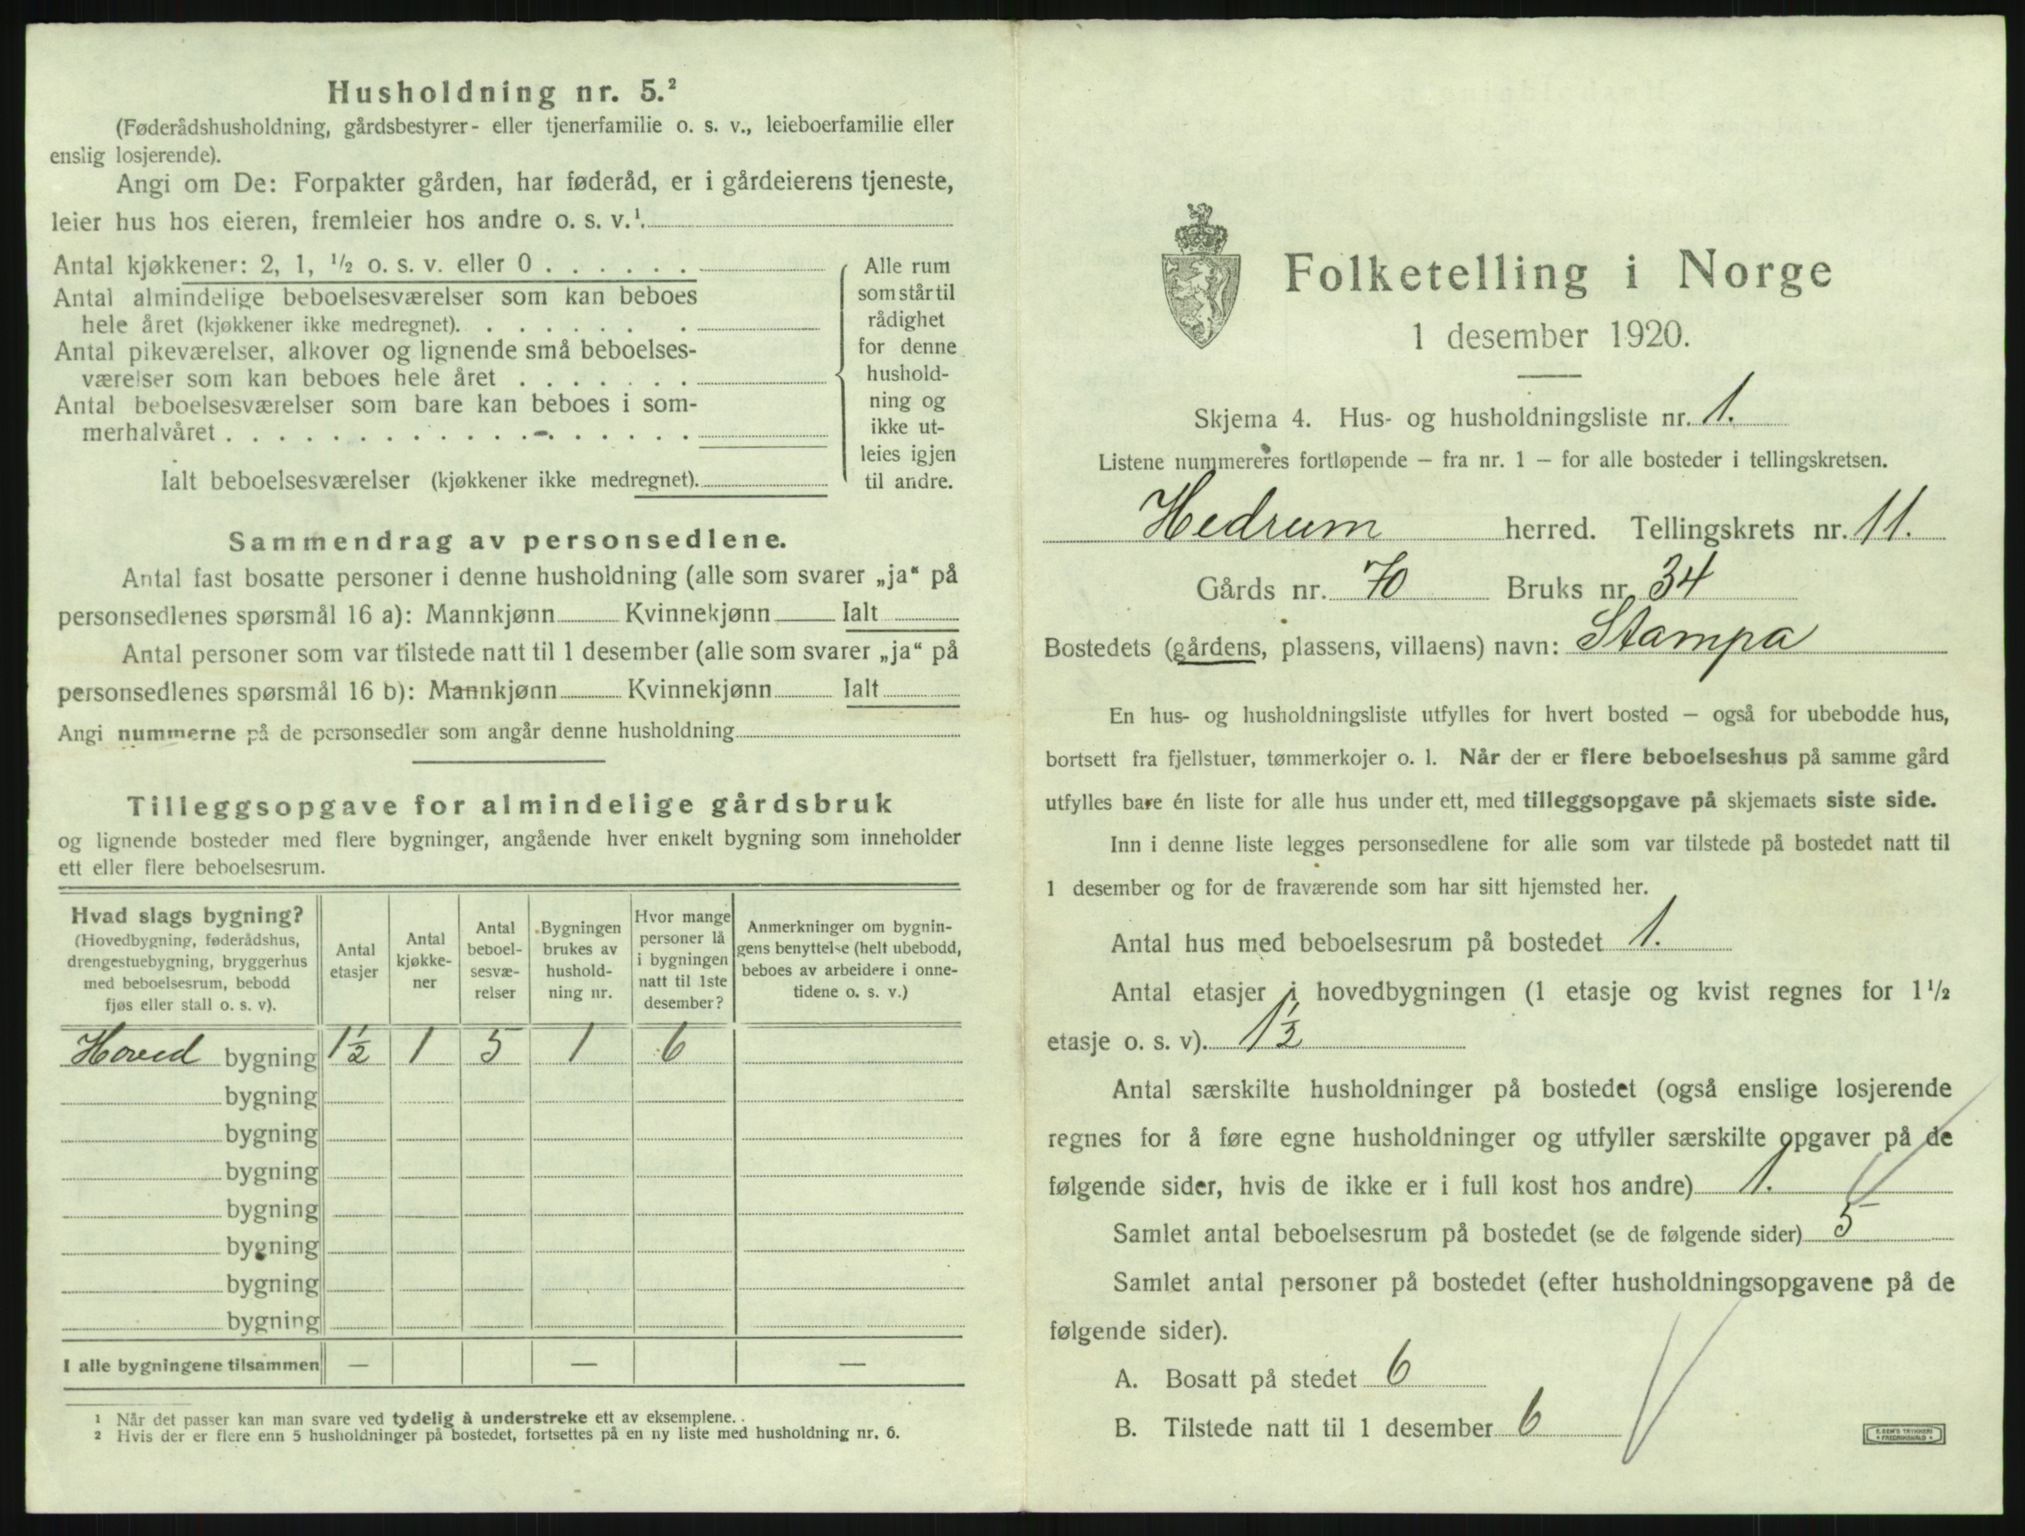 Husholdning nr. 5.²
(Føderådshusholdning, gårdsbestyrer- eller tjenerfamilie o. s. v., leieboerfamilie eller
enslig losjerende).
Angi om De: Forpakter gården, har føderåd, er i gårdeierens tjeneste,
leier hus hos eieren, fremleier hos andre o. s. v.¹.
Antal kjøkkener: 2, 1, ½ o. s. v. eller 0 . . . . . .
Antal almindelige beboelsesværelser som kan beboes
hele året (kjøkkener ikke medregnet). . . . . . . .
Antal pikeværelser, alkover og lignende små beboelses-
værelser som kan beboes hele året . . . . . . .
Antal beboelsesværelser som bare kan beboes i som-
merhalvåret . . . . . . . . . . . . . . . .
Ialt beboelsesværelser (kjøkkener ikke medregnet).
Alle rum
som står til
rådighet
for denne
hushold-
ning og
ikke ut-
leies igjen
til andre.
Sammendrag av personsedlene.
Antal fast bosatte personer i denne husholdning (alle som svarer „ja“ på
personsedlenes spørsmål 16 a): Mannkjønn Kvinnekjønn Ialt
Antal personer som var tilstede natt til 1 desember (alle som svarer „ja“ på
personsedlenes spørsmål 16 b): Mannkjønn Kvinnekjønn Ialt
Angi nummerne på de personsedler som angår denne husholdning
Tilleggsopgave for almindelige gårdsbruk
og lignende bosteder med flere bygninger, angående hver enkelt bygning som inneholder
ett eller flere beboelsesrum.
Hvad slags bygning?
(Hovedbygning, føderådshus,
drengestuebygning, bryggerhus
med beboelsesrum, bebodd
fjøs eller stall o. s. v).
Antal
etasjer
Antal
kjøkke-
ner
Antal
beboel-
sesvæ-
relser
Bygningen
brukes av
hushold-
ning nr.
Hvor mange
personer lå
i bygningen
natt til 1ste
desember?
Anmerkninger om bygnin-
gens benyttelse (helt ubebodd,
beboes av arbeidere i onne-
tidene o. s. v.)
Hoved bygning 1½ 1 5 1 6
bygning
bygning
bygning
bygning
bygning
bygning
bygning
I alle bygningene tilsammen — — —
¹ Når det passer kan man svare ved tydelig å understreke ett av eksemplene.
² Hvis der er flere enn 5 husholdninger på bostedet, fortsettes på en ny liste med husholdning nr. 6.
Folketelling i Norge
1 desember 1920.
Skjema 4. Hus- og husholdningsliste nr. 1.
Listene nummereres fortløpende – fra nr. 1 – for alle bosteder i tellingskretsen.
Hedrum herred. Tellingskrets nr. 11.
Gårds nr. 70 Bruks nr. 34
Bostedets (gårdens, plassens, villaens) navn: Stampa
En hus- og husholdningsliste utfylles for hvert bosted – også for ubebodde hus,
bortsett fra fjellstuer, tømmerkojer o. l. Når der er flere beboelseshus på samme gård
utfylles bare én liste for alle hus under ett, med tilleggsopgave på skjemaets siste side.
Inn i denne liste legges personsedlene for alle som var tilstede på bostedet natt til
1 desember og for de fraværende som har sitt hjemsted her.
Antal hus med beboelsesrum på bostedet 1.
Antal etasjer i hovedbygningen (1 etasje og kvist regnes for 1½
etasje o. s. v). 1½
Antal særskilte husholdninger på bostedet (også enslige losjerende
regnes for å føre egne husholdninger og utfyller særskilte opgaver på de
følgende sider, hvis de ikke er i full kost hos andre) 1.
Samlet antal beboelsesrum på bostedet (se de følgende sider) 5
Samlet antal personer på bostedet (efter husholdningsopgavene på de
følgende sider).
A. Bosatt på stedet 6
B. Tilstede natt til 1 desember 6